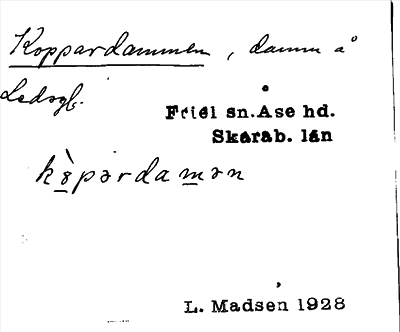 Koppardammen, damm å
Ledsgb.
Friel sn. Åse hd.
Skarab. län
kò̱pərdam̱ən
L. Madsen 1928